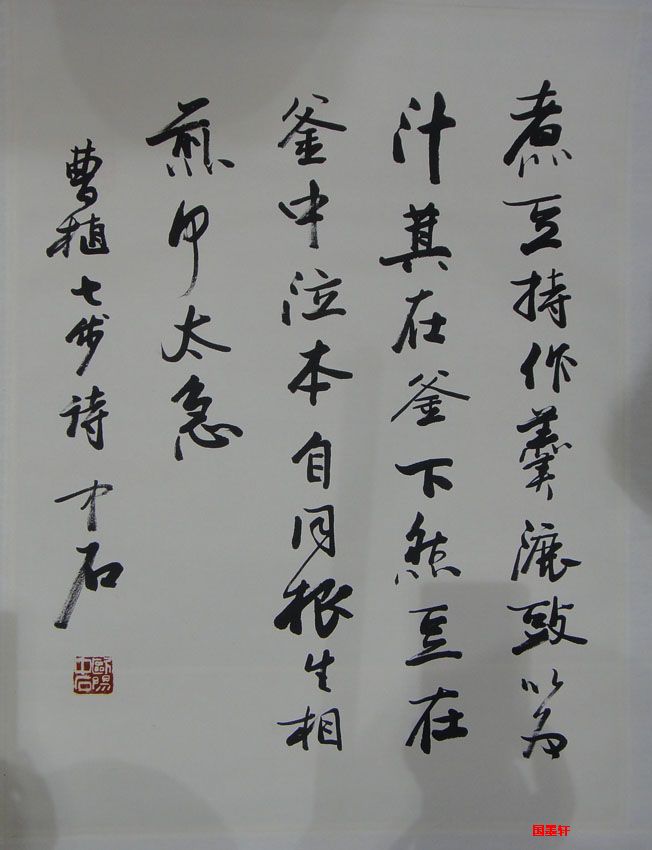 煮豆持作羹漉豉以為
汁萁在釜下然豆在
釜中泣本自同根生相
煎何太急
曹植七步詩 中石
歐陽中石
国墨轩